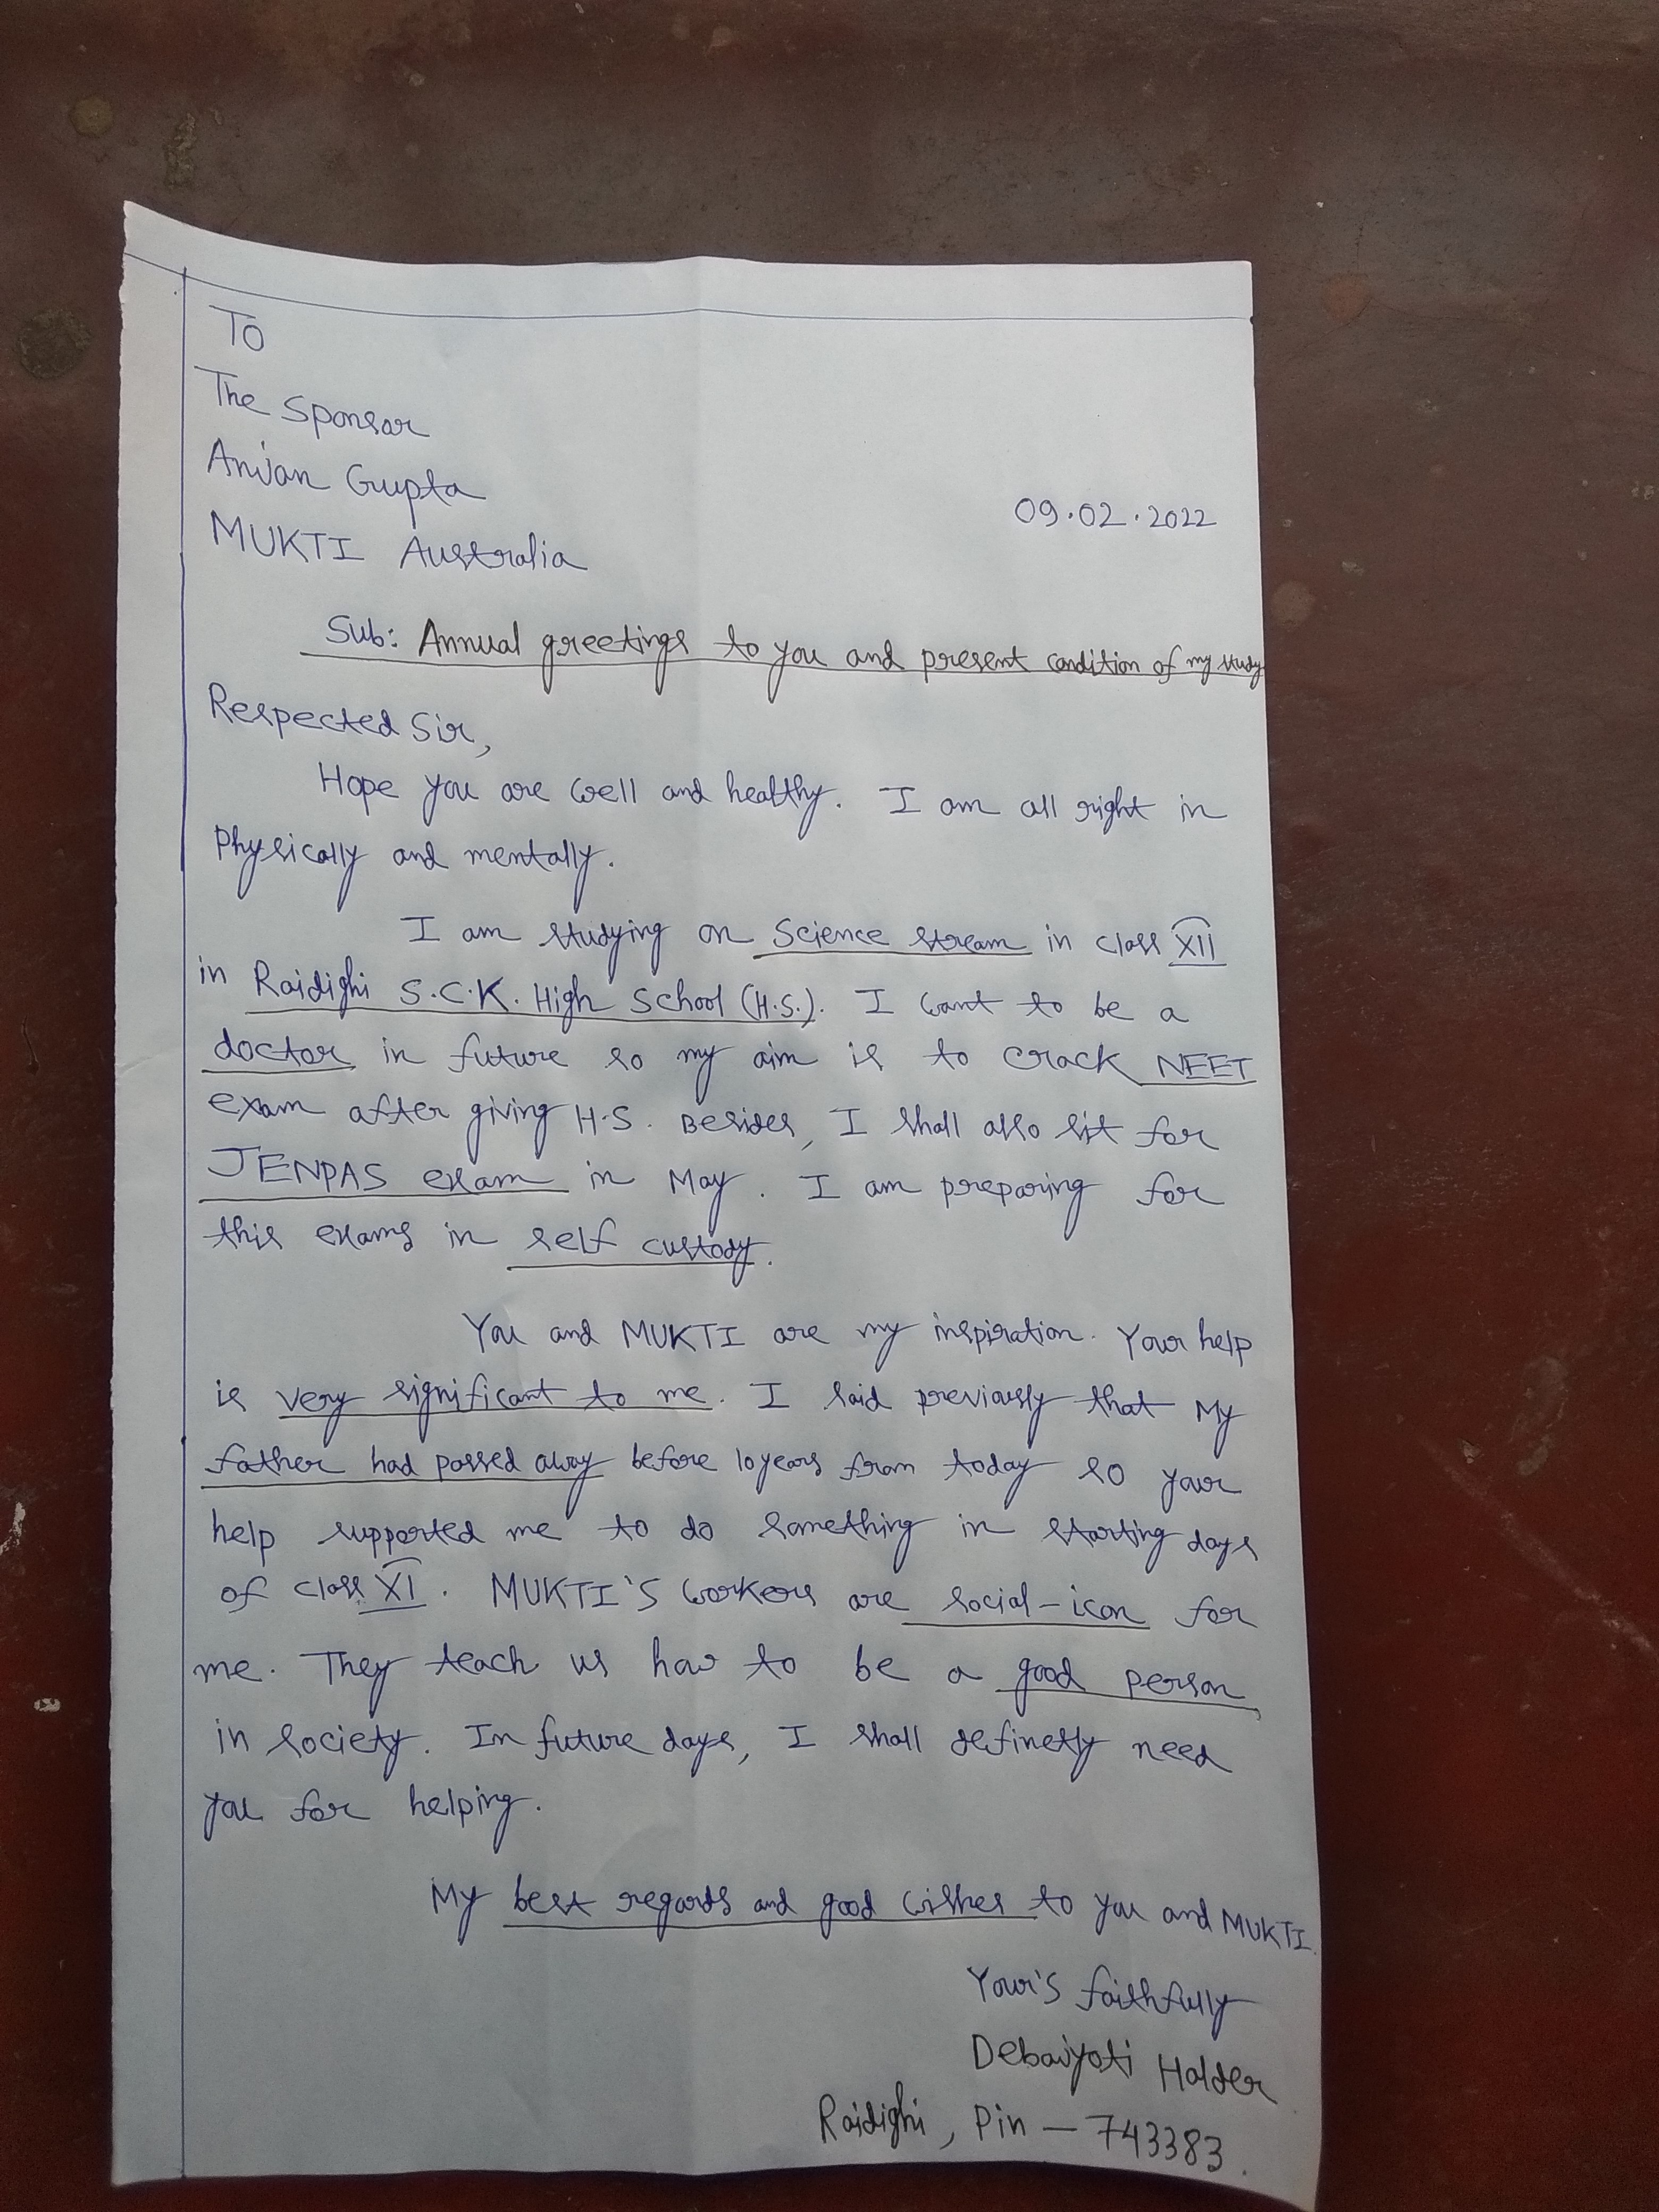 TO
The Sponsar
Anjan Gupta
MUKTI Australia
09.02.2022
Sub: Annual greetings to you and present condition of my study
Respected Sir,
Hope you are well and healthy. I am all right in
Physically and mentally.
I am studying on Science stream in class XII
in Raidighi S.C.K. High School (H.S.). I want to be a
doctor in future so my aim is to crack NEET
exam after giving H.S. Besides, I shall also sit for
JENPAS exam in May. I am preparing for
this exams in self custody.
You and MUKTI are my inspiration. Your help
is very significant to me. I said previously that My
father had passed away before 10 years from today so your
help supported me to do something in starting days
of class XI. MUKTI'S workers are social-icon for
me. They teach us how to be a good person
in society. In future days, I shall definetly need
you for helping.
My best regards and good wishes to you and MUKTI.
Your's faithfully
Debajyoti Halder
Raidighi, Pin - 743383.